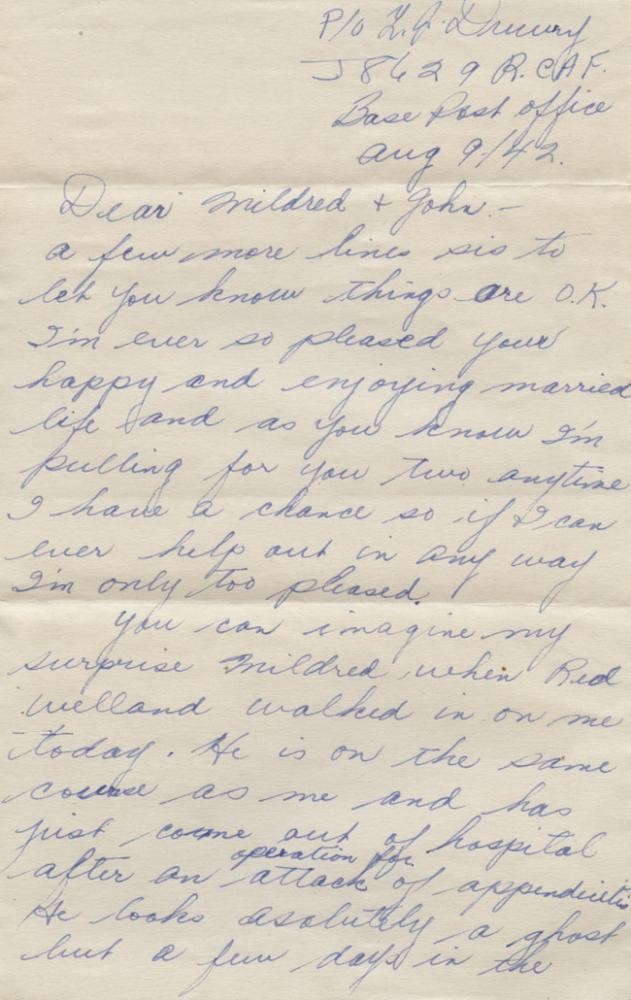 P/O L.G. Drewry
J8629 R.C.A.F.
Base Post office
Aug 9/42.
Dear Mildred + John -
a few more lines sis to
let you know things are O.K.
I'm ever so pleased your
happy and enjoying married
life and as you know I'm
pulling for you two anytime
I have a chance so if I can
ever help out in any way
I'm only too pleased.
You can imagine my
surprise Mildred when Red
Welland walked in on me
today. He is on the same
course as me and has
just come out of hospital
operation for
after an attack of appendicitis
He looks asolutely a ghost
but a few days in the